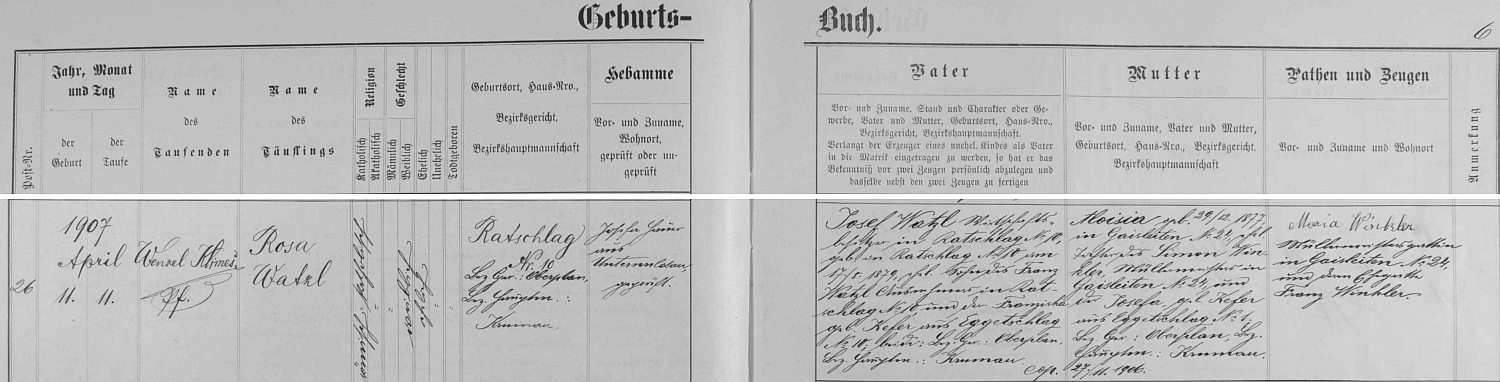 Geburts-
Buch.
6
Post-Nr.
Jahr, Monat
und Tag
der
Geburt
der
Taufe
Name
des
Taufenden
Name
des
Täuflings
Religion
Katholisch
Akatholisch
Geschlecht
Männlich
Weiblich
Ehelich
Unehelich
Todtgeboren
Geburtsort, Haus-Nro.,
Bezirksgericht,
Bezirkshauptmannschaft
Hebamme
Vor- und Zuname,
Wohnort,
geprüft oder un-
geprüft
Vater
Vor- und Zuname, Stand und Charakter oder Ge-
werbe, Vater und Mutter, Geburtsort, Haus-Nro.,
Bezirksgericht, Bezirkshauptmannschaft.
Verlangt der Erzenger eines unehel. Kindes als Vater
in die Matrik eingetragen zu werden, so hat er das
Bekenntniß vor zwei Zengen persönlich abzulegen und
dasselbe nebst den zwei Zengen zu fertigen
Mutter
Vor- und Zuname, Vater und Mutter,
Geburtsort, Haus-Nro., Bezirksgericht.
Bezirkshauptmannschaft
Pathen und Zeugen
Vor- und Zuname und Wohnort
Anmerkung
26
1907
April
11. 11.
Wenzel Klimeš
Pf.
Rosa
Watzl
Ratschlag
Nr. 10
Bez. Ger.: Oberplan,
Bez. Hauptm.:
Krumau.
Josefa
aus
Unterwuldau
geprüft.
Josef Watzl Wirtschafts-
besitzer in Ratschlag N. 10,
geb. in Ratschlag N. 10 am
17/5. 1879, ehl. Sohn des Franz
Watzl Ausnehmers in Rat-
schlag N. 10, und der Franziska
geb. Kefer aus Eggetschlag
N. 10; beide: Bez. Ger.: Oberplan,
Bez. Hauptm.: Krumau.
Cop.
Aloisia geb. 29/12. 1877
in Gaisleiten N. 24, ehl.
Tochter des Simon Win-
kler, Müllermeisters in
Gaisleiten N. 24, und
der Josefa, geb. Kefer
aus Eggetschlag N. 1;
Bez. Ger.: Oberplan, Bez.
Hauptm.: Krumau.
27/11. 1906.
Maria Winkler
Müllermeistersgattin
in Gaisleiten N. 24,
und deren Ehegatte
Franz Winkler.